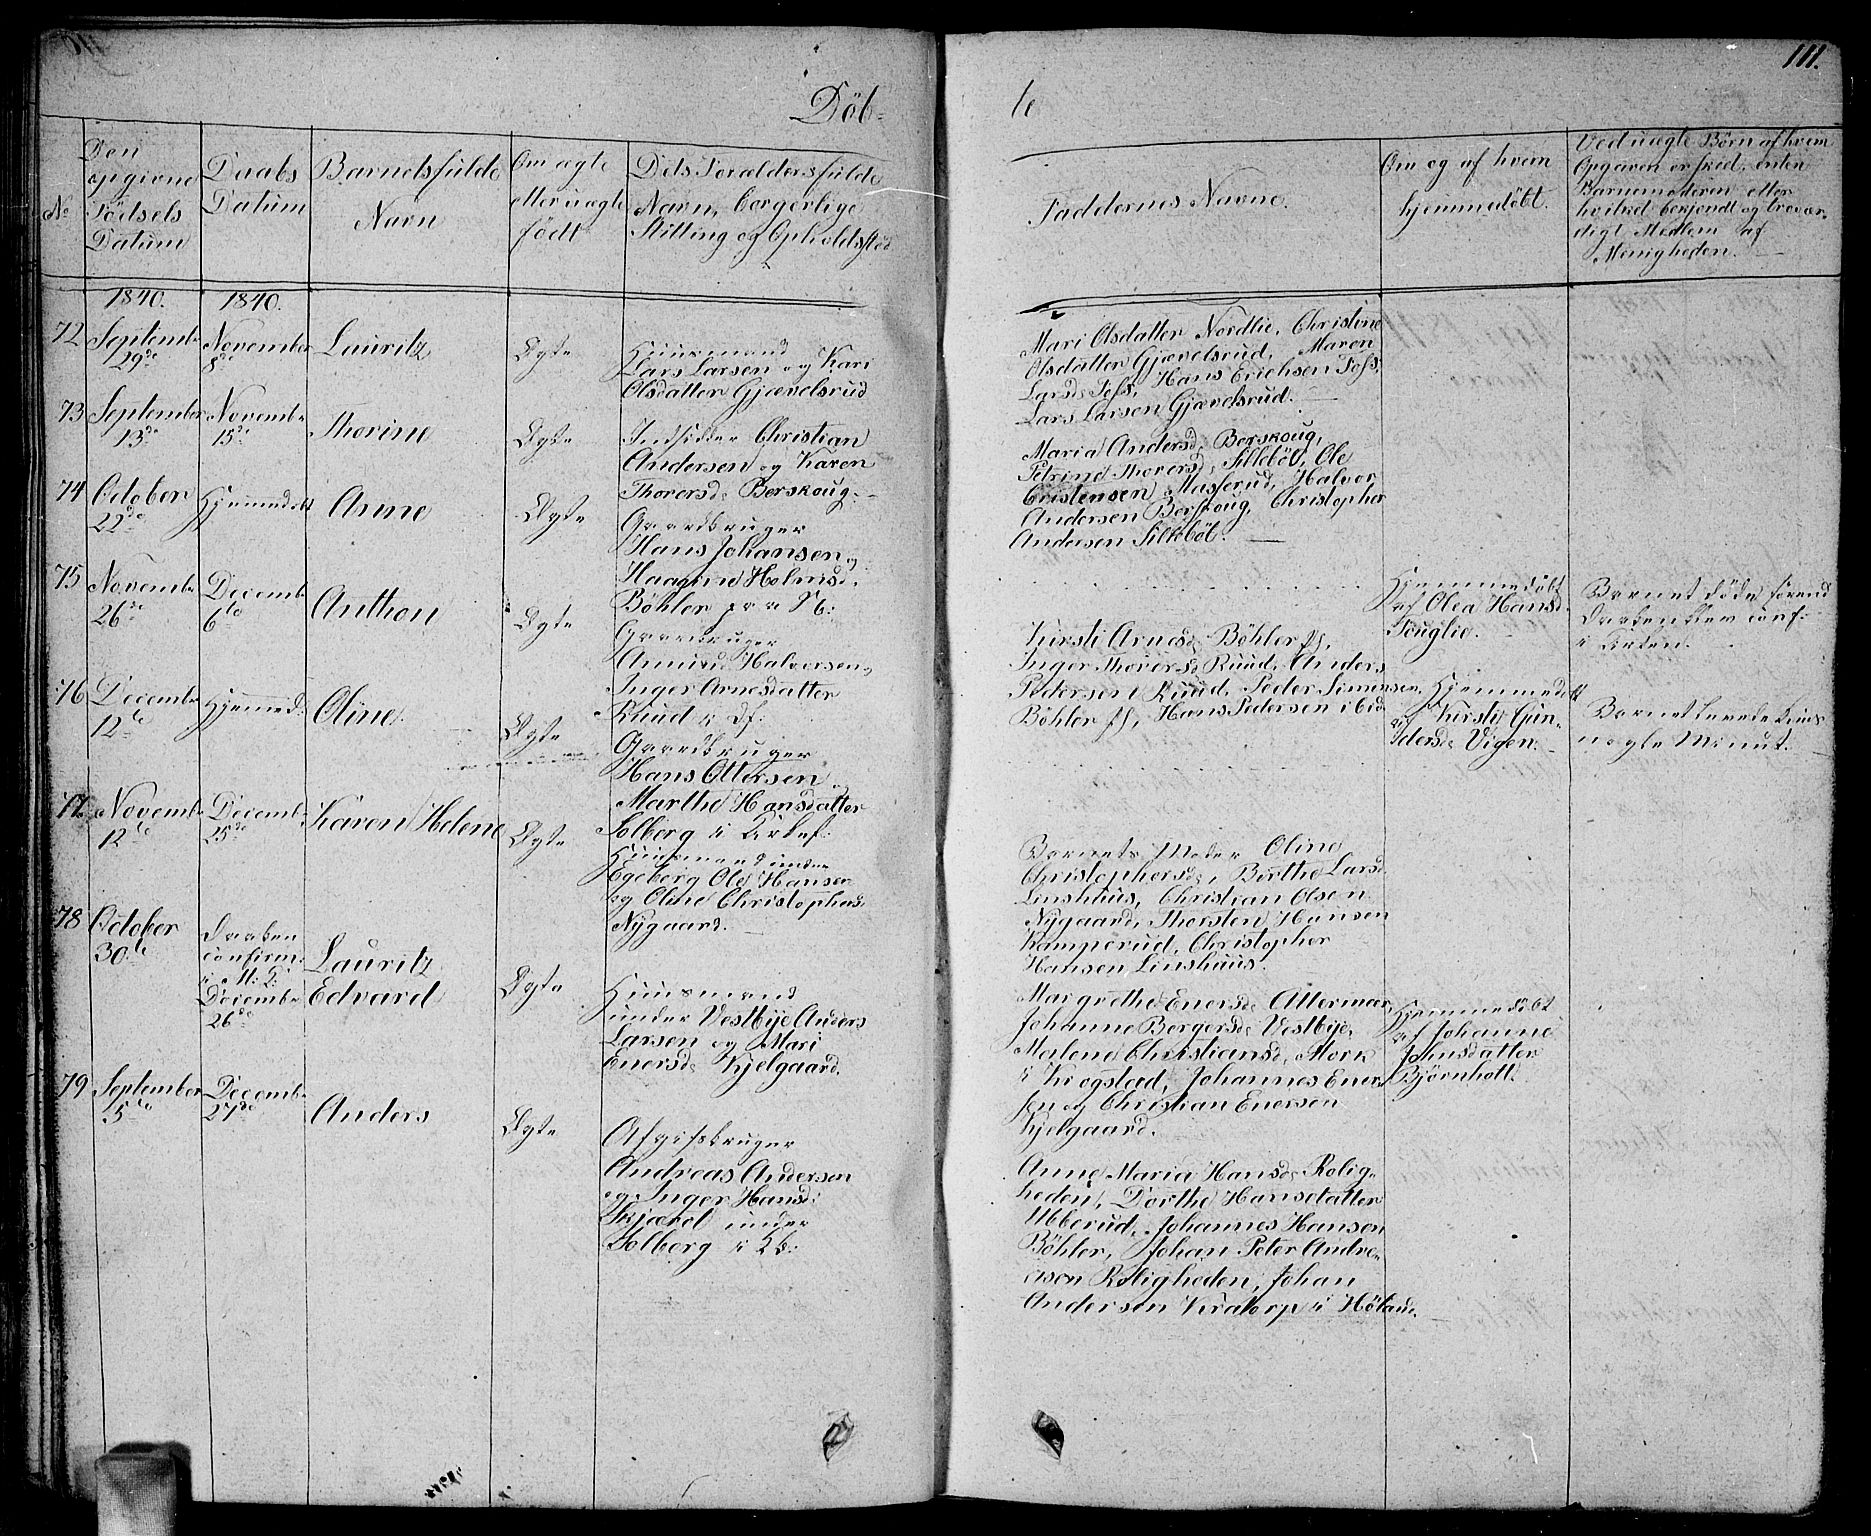 111.
Döb-
te
No
Den
opgivne
Födsels
Datum
Daabs
Datum
Barnetsfulde
Navn
Om ægte
eller uægte
födt
Dets Forældersfulde
Navn, borgerlige
Stilling og Opholdsstæd
Faddernes Navne.
Om og af hvem
hjemmedöbt.
Ved uægte Börn af hvem
Opgaven er skeed, enten
Barnemoderen eller
hvilket bekjendt og troevær-
digt Medlem af
Menigheden.
1840.
1840.
72
Septembr
29de
Novembr
8de
Lauritz
Ægte
Huusmand
Lars Larsen og Kari
Olsdatter Gjævelsrud
Mari Olsdatter Nordlie, Christine
Olsdatter Gjævelsrud, Maren
Larsd. Foss, Hans Erichsen Foss,
Lars Larsen Gjævelsrud.
73
September
13de
Novembr
15de
Thorine
Ægte
Indsidder Christian
Andersen og Karen
Thorersd. Berskoug.
Maria Andersd. Berskoug,
Petrine Thorersd. Silleböl, Ole
Cristensen Masserud, Halvor
Andersen Berskoug, Christopher
Andersen Silleböl.
74
October
22de
Hjemmedöbt
Anne
Ægte
Gaardbruger
Hans Johansen og
Haagine Holmsd.
Böhler paa Nb:
Hjemmedöbt
af Olea Hansd.
Fouglie.
Barnet döde forend
Daaben blev conf:
i Kirken.
75
Novembr
26de
Decembr
6te
Anthon
Ægte
Gaardbruger
Amund Halvorsen,
Inger Arnesdatter
Ruud i Df:
Kirsti Arnesd. Böhler pl,
Inger Thorersd. Ruud, Anders
Pedersen Ruud, Peder Simensen
Böhler pl, Hans Pedersen ibid
76
Decembr
12te
Hjemmed:
Oline
Ægte
Gaardbruger
Hans Ottersen og
Marthe Hansdatter
Solberg i Kirkef:
Hjemmedöbt
af Kirsti Gun-
dersd. Vigen.
Barnet levede kuns
nogle Minut.
77.
Novembr
12te
Decembr
25de
Karen Helene
Ægte
Huusmand under
Egeberg Ole Hansen
og Oline Christophersd.
Nygaard.
Barnets Moder Oline
Christophersd., Birthe Larsd.
Linshuus, Christian Olsen
Nygaard, Thorsten Hansen
Kamperud, Christopher
Hansen Linshuus.
78
October
30te
Daaben
confirm:
i M: K:
Decembr
26de
Lauritz
Edvard
Ægte
Huusmand
under Vestbye Anders
Larsen og Mari
Enersd. Kjelgaard.
Margrethe Enersd. Altermar,
Johanne Borgersd. Vestbye,
Malene Christiansd. Mork
i Krogstad, Johannes Ener-
sen og Christian Enersen
Kjelgaard.
Hjemmedöbt
af Johanne
Johnsdatter
Bjørnholt.
79
September
5te
Decembr
27de
Anders
Ægte
Afgifsbruger
Andreas Andersen
og Inger Hansd:
Skjærel under
Solberg i Kb:
Anne Maria Hansd. Rolig-
heden, Dorthe Hansdatter
Ubberud, Johannes Hansen
Böhler, Johan Peter Andre-
asen Roligheden, Johan
Andersen Kratorp i Höland.